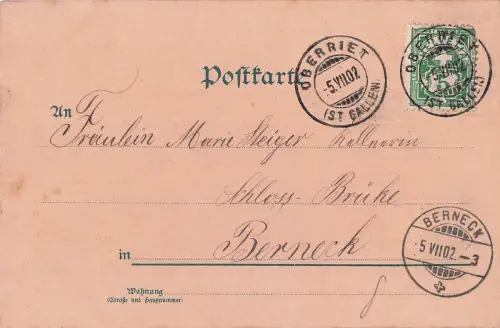 Postkarte
OBERRIET
-5.VII.02
(ST GALLEN)
OBERRIET
-5.VII.02
(ST GALLEN)
5
An Fräulein Marie Steiger Kellnerin
Schloss-Brüke
in Berneck
BERNECK
-5 VII 02 -3
Wohnung
(Straße und Hausnummer)